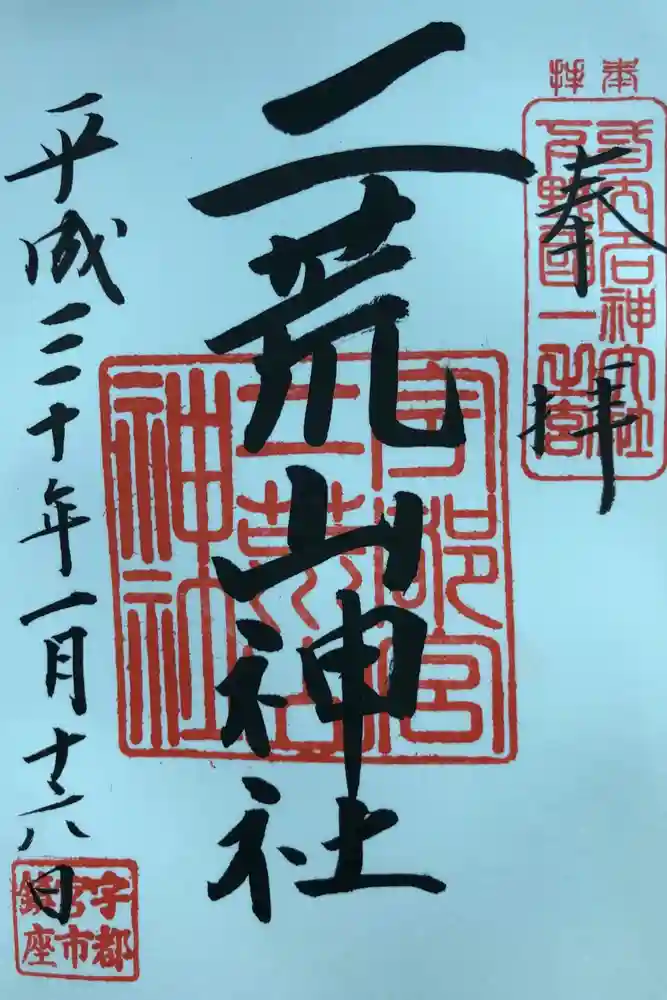 奉拝
式内名神大社
下野國一之宮
奉拝
二荒山神社
宇都宮
二荒山
神社
平成三十年一月十六日
宇都
宮市
鎮座